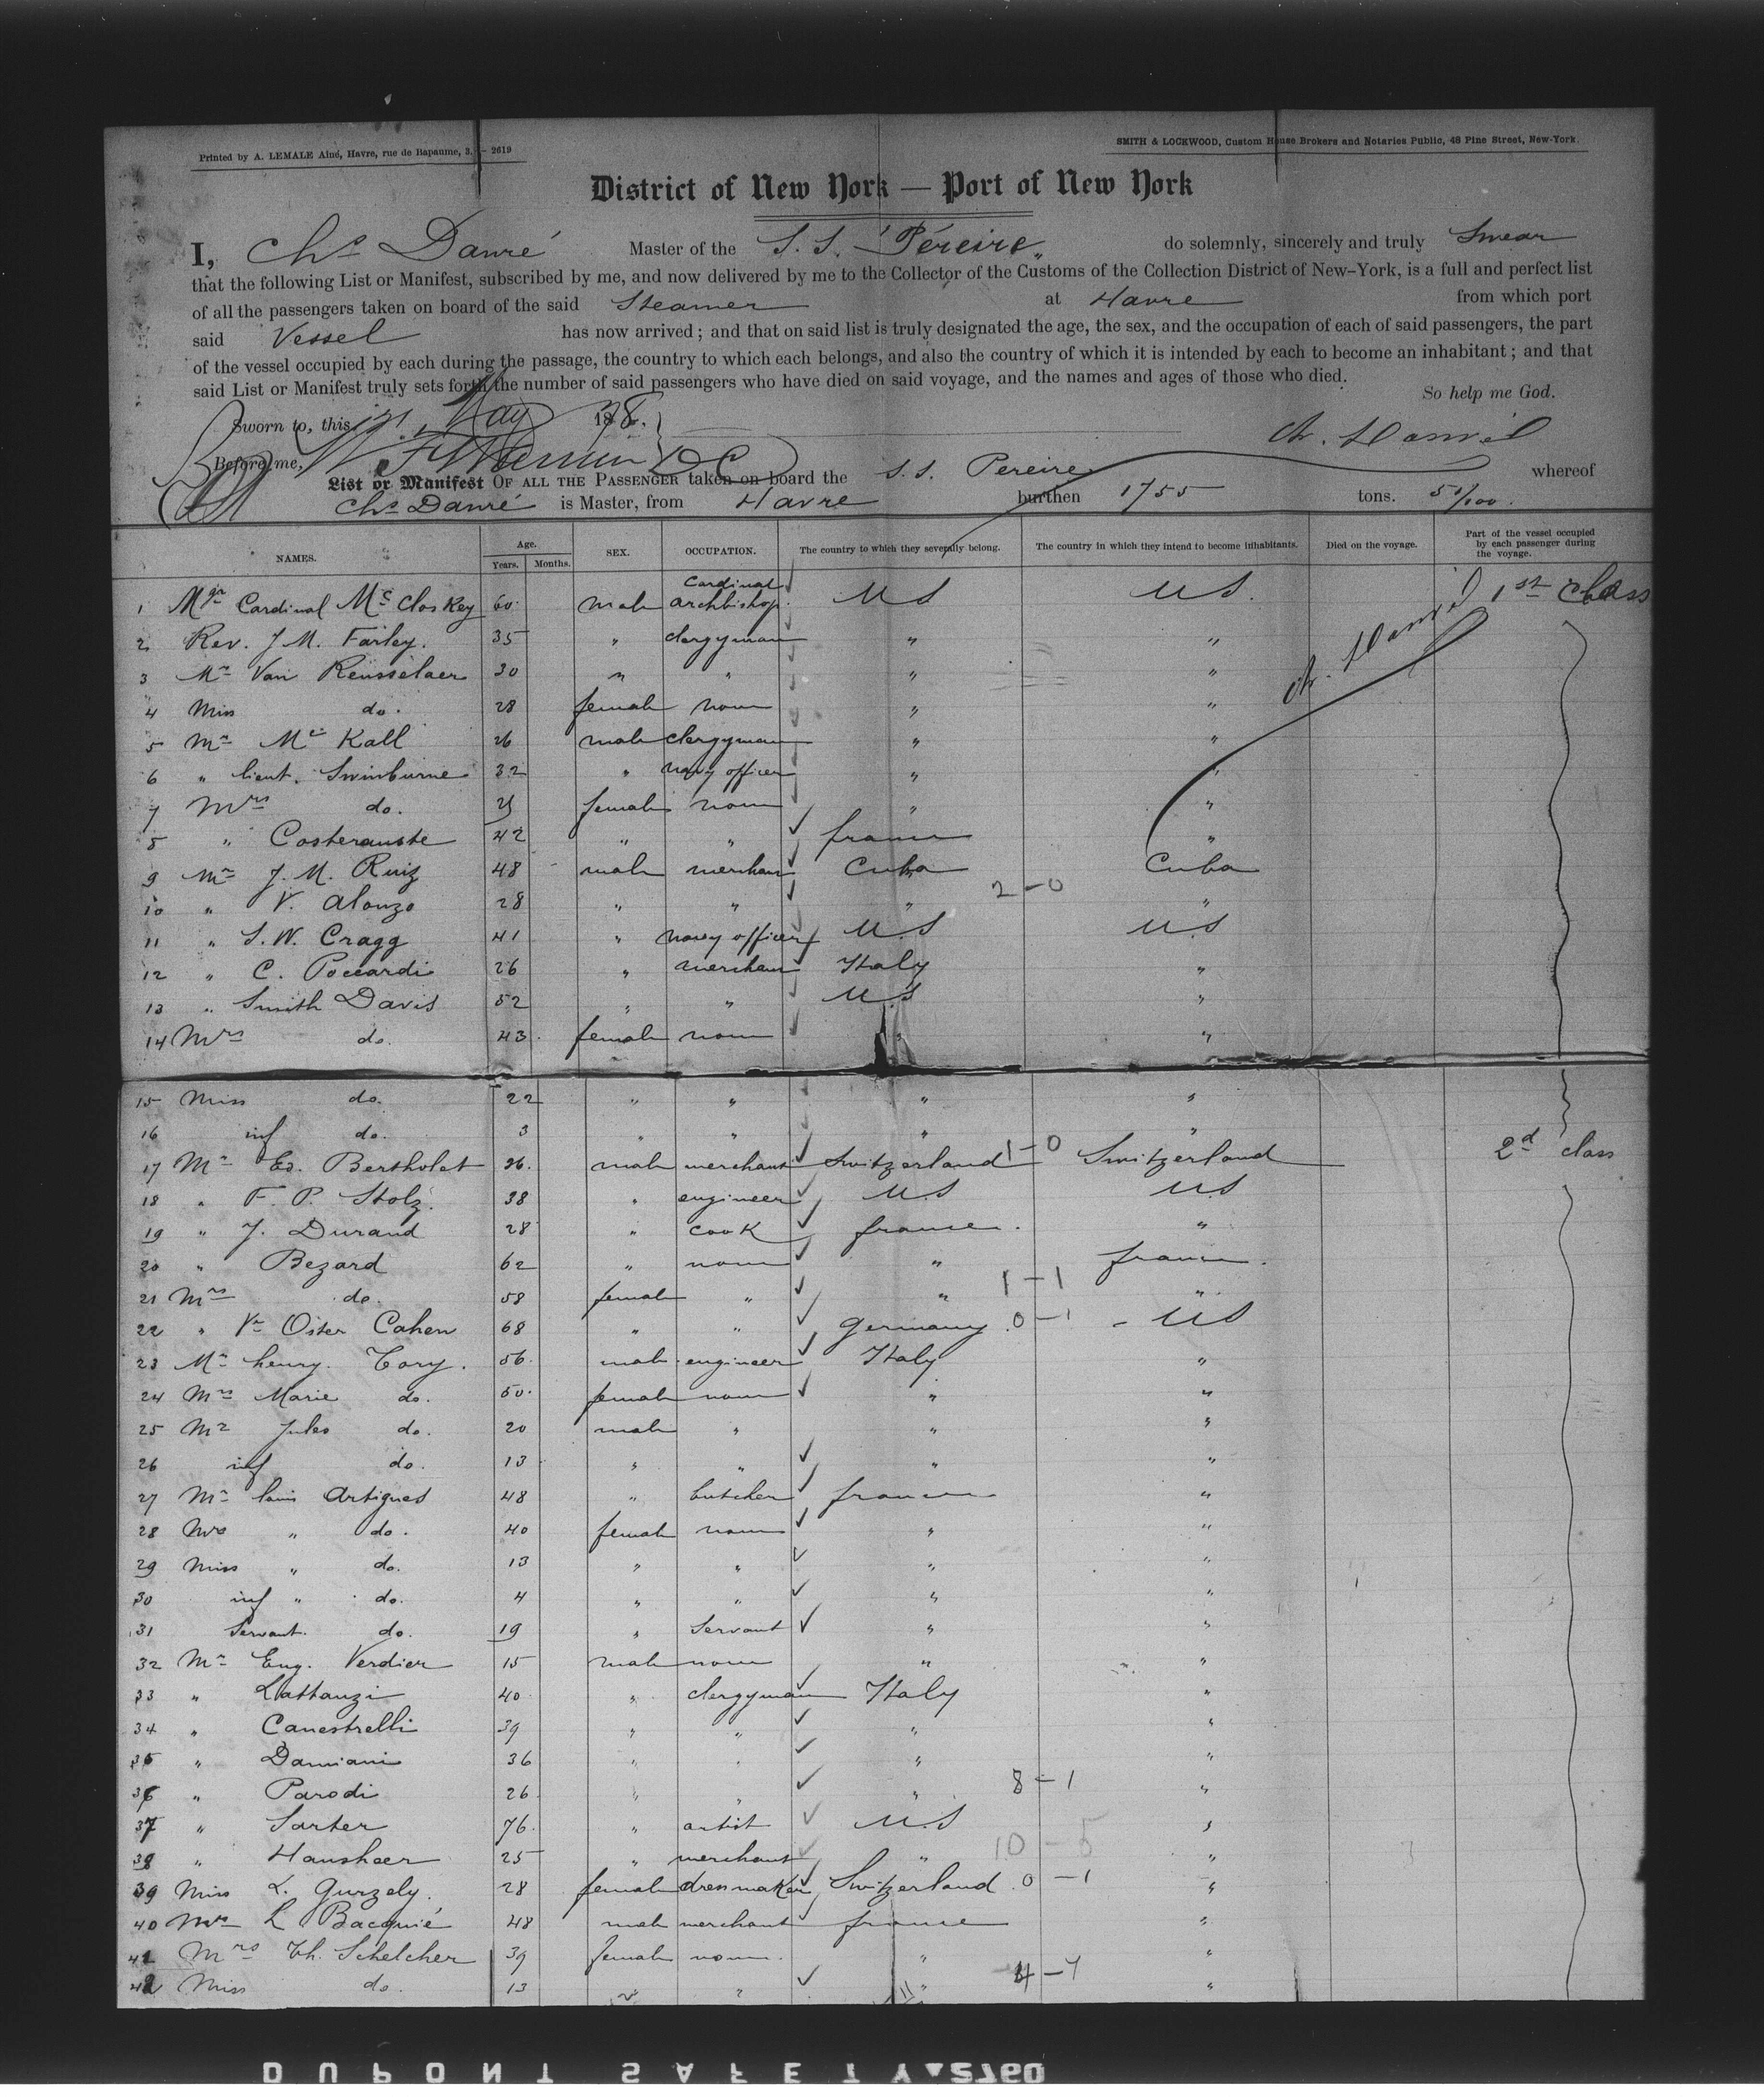 Printed by A. LEMALE Aîné, Havre, rue de Bapaume, 3. — 2619
SMITH & LOCKWOOD, Custom House Brokers and Notaries Public, 48 Pine Street, New-York.
District of New York — Port of New York
I, Chs Danré Master of the S. S. "Péreire" do solemnly, sincerely and truly Swear
that the following List or Manifest, subscribed by me, and now delivered by me to the Collector of the Customs of the Collection District of New-York, is a full and perfect list
of all the passengers taken on board of the said Steamer at Havre from which port
said Vessel has now arrived; and that on said list is truly designated the age, the sex, and the occupation of each of said passengers, the part
of the vessel occupied by each during the passage, the country to which each belongs, and also the country of which it is intended by each to become an inhabitant; and that
said List or Manifest truly sets forth the number of said passengers who have died on said voyage, and the names and ages of those who died.
So help me God.
Sworn to, this May 1878.
Before me,
List or Manifest OF ALL THE PASSENGER taken on board the S. S. Pereire whereof
Chs Danré is Master, from Havre burthen 1755 tons. 51/100.
NAMES. Age. Years. Months. SEX. OCCUPATION. The country to which they severally belong. The country in which they intend to become inhabitants. Died on the voyage. Part of the vessel occupied by each passenger during the voyage.
1 Mgr Cardinal Mc Closkey 60 male Cardinal archbishop. U S U S. 1st class
2 Rev. J M. Farley. 35 " clergyman " "
3 Mr Van Rensselaer 30 " " " "
4 Miss do. 28 female none " "
5 Mr Mc Kall 26 male clergyman " "
6 " lieut. Swinburne 32 " navy officer " "
7 Mrs do. female none " "
8 " Costerauste 42 " " france "
9 Mr J. M. Ruiz 48 male merchant Cuba Cuba
2 - 0
10 " V. Alonzo 28 " " " "
11 " S. W. Cragg 41 " navy officer U.S U.S
12 " C. Poccardi 26 " merchant Italy "
13 " Smith Davis 52 " " U.S "
14 Mrs do. 43 female none " "
15 Miss do. 22 " " " "
16 inf do. 3 " " " "
17 Mr Ed. Bertholet 26. male merchant Switzerland 1 - 0 Switzerland 2d class
18 " F. P. Stolz. 38 " engineer U.S U.S
19 " J. Durand 28 " cook france. "
20 " Bezard 62 " none " france.
21 Mrs do. 58 female " " 1 - 1 "
22 " Ve Oster Cahen 68 " " germany. 0 - 1 - U S
23 Mr henry. Tory. 56. male engineer Italy "
24 Mrs Marie do. 50. female none " "
25 Mr Jules do. 20 male " " "
26 inf do. 13 " " " "
27 Mr louis Artigues 48 " butcher france "
28 Mrs " do. 40 female none " "
29 Miss " do. 13 " " " "
30 inf " do. 4 " " " "
31 Servant. do. 19 " Servant " "
32 Mr Eug. Verdier 15 male none " "
33 " Lattanzi 40 " clergyman Italy "
34 " Canestrelli 39 " " " "
35 " Damiani 36 " " " "
36 " Parodi 26 " " " 8 - 1 "
37 " Sarter 76. " artist U.S "
38 " Hausheer 25 " merchant " 10 - 5 "
39 Miss L. Gurzely. 28 female dressmaker Switzerland. 0 - 1 "
40 L Bacquié 48 male merchant france "
41 Mrs Th. Schelcher 39 female none. " "
42 Miss do. 13 " " " 4 - 7 "
DUPONT SAFETY 2760